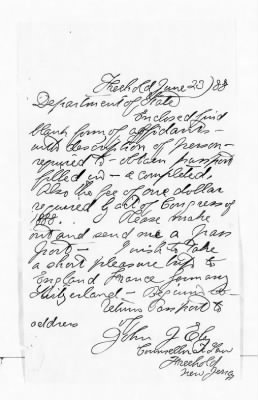 Freehold June 23/88
Department of State
Enclosed find
blank form of affidavits -
with description of person -
required to obtain passport
filled in - & completed,
Also the fee of one dollar
required by act of Congress of
1888. Please make
out and send me a pass
port - I wish to take
a short pleasure trip to
England France Germany
Switzerland -
return Passport to
address of
John J. Ely
Counsellor at Law
Freehold
New Jersey